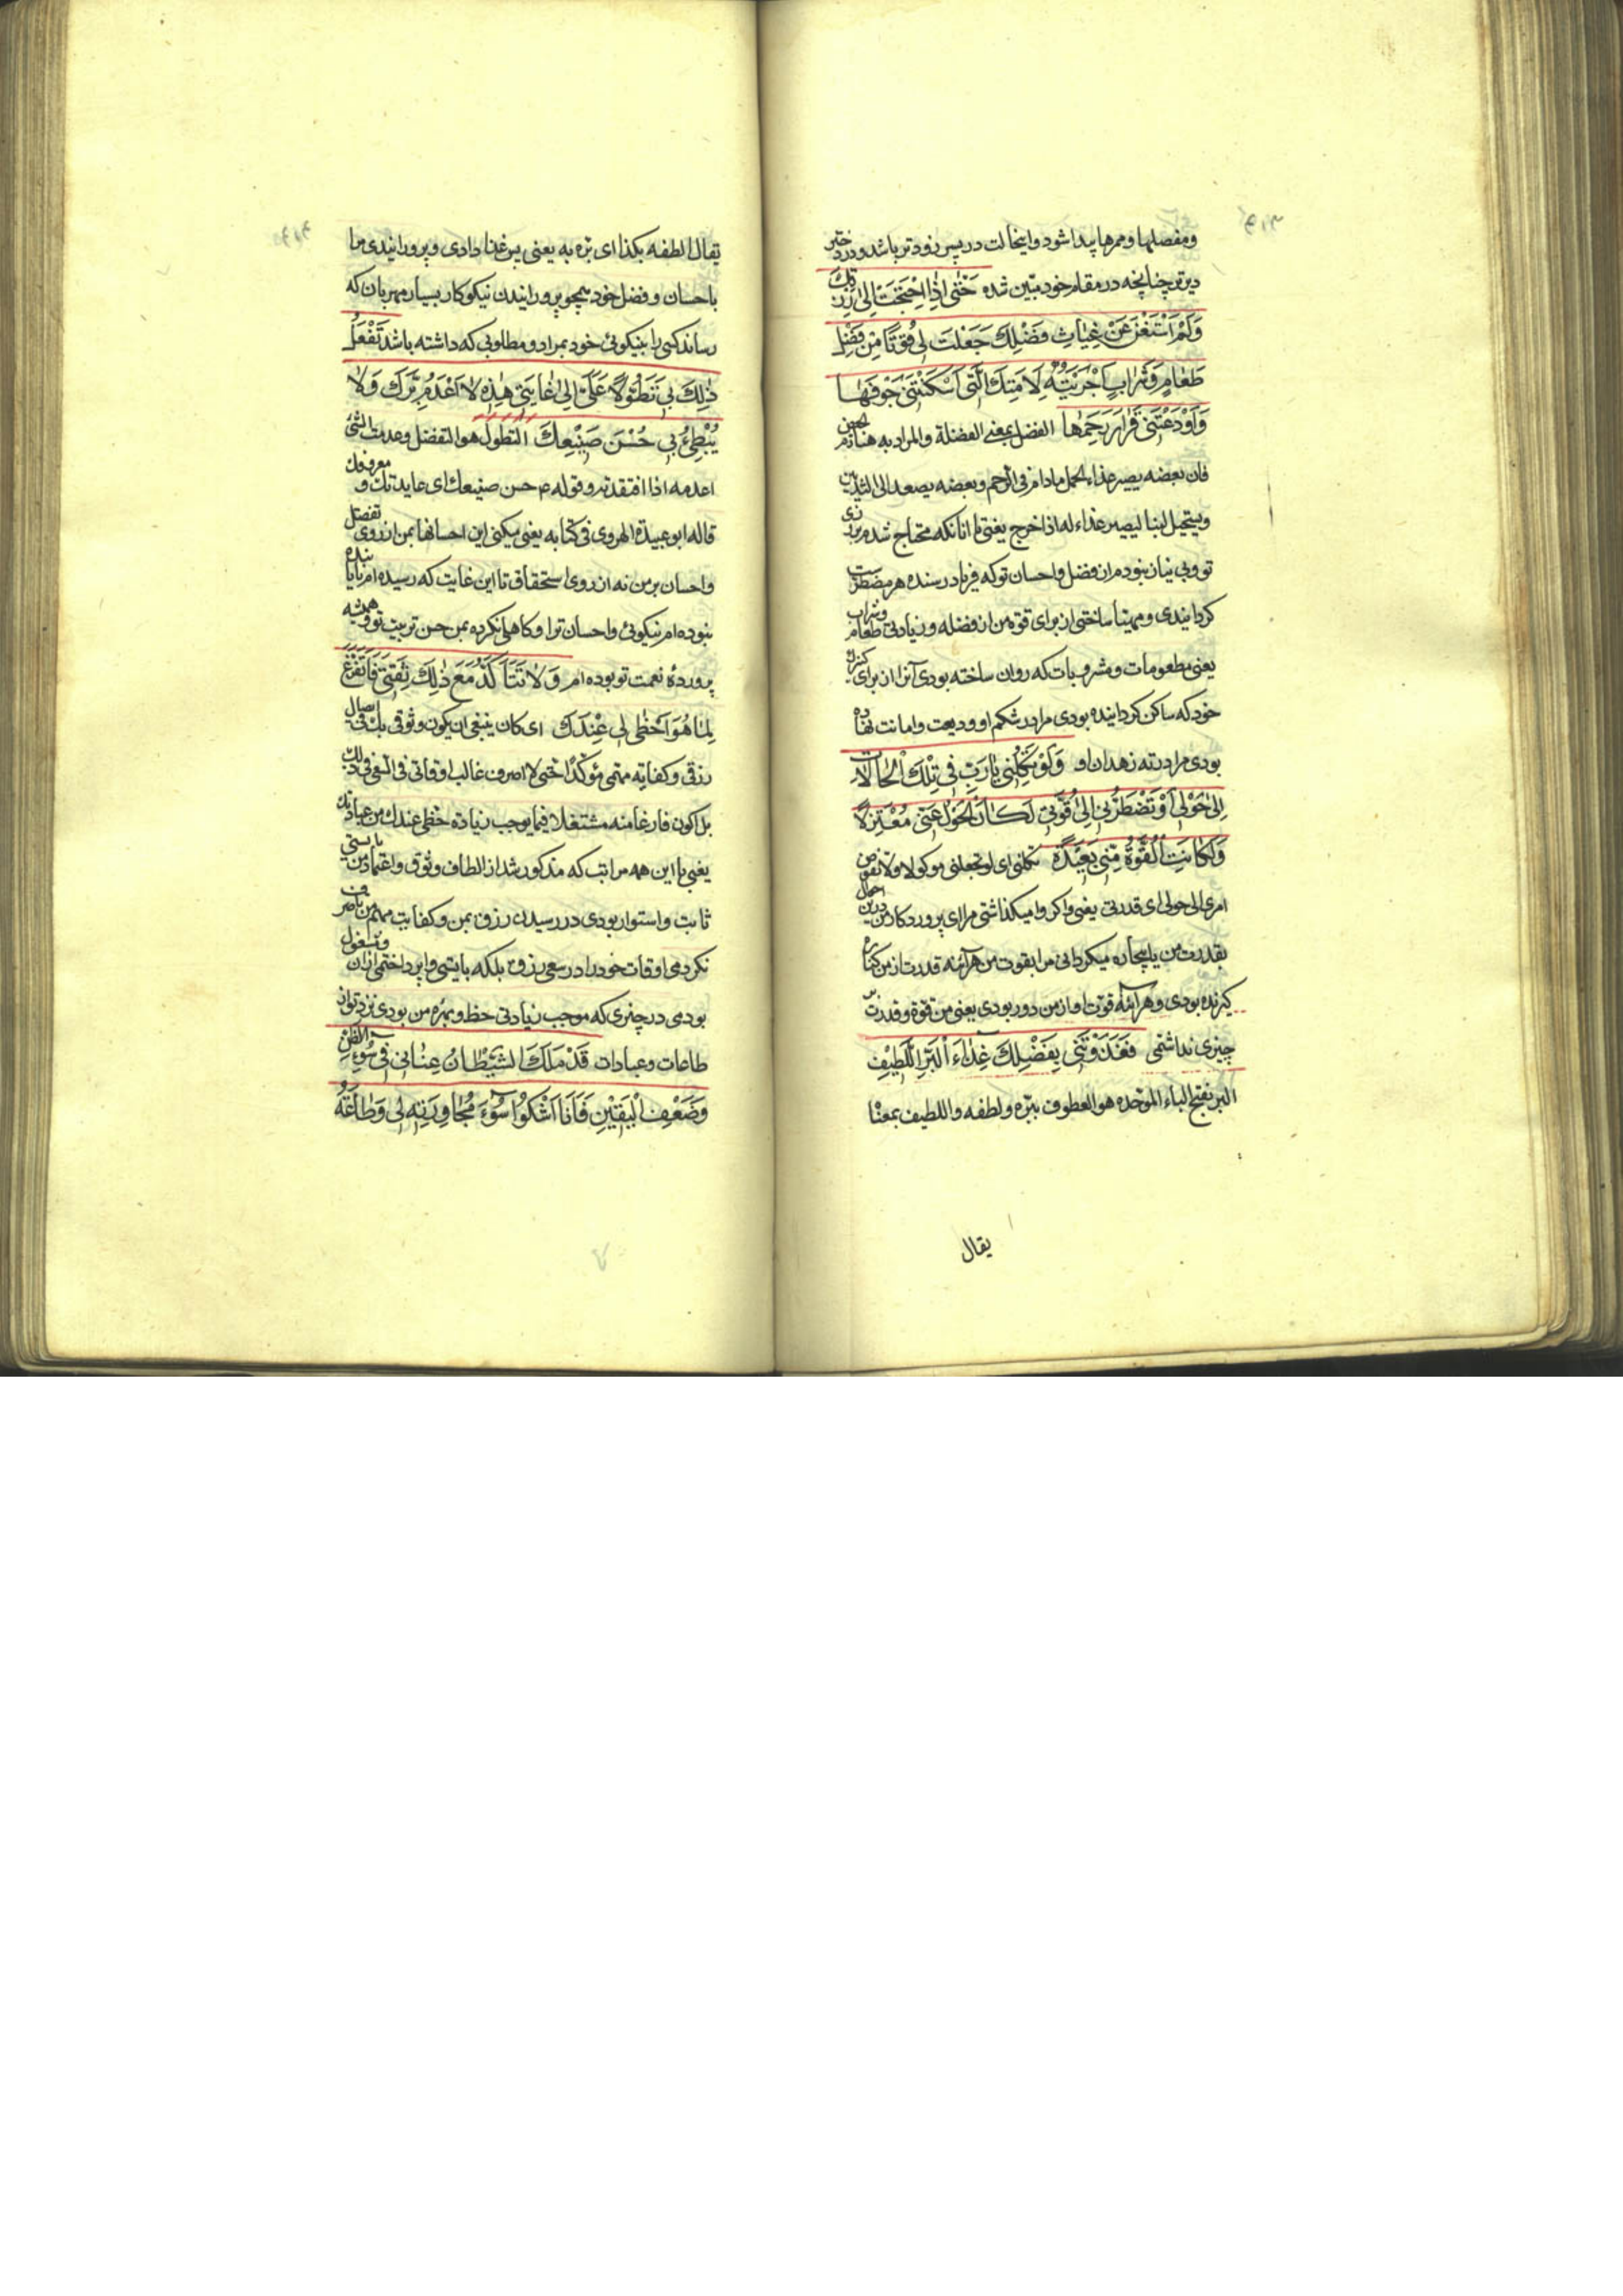 ومفصلها وممرها پیدا شود و اینحالت در پسر زودتر باشد و در دختر
دیرتر چنانچه در مقام خود مبیّن شده حَتّٰی اِذَا احْتَجْتُ اِلیٰ رِزْقِكَ
وَلَمْ اَسْتَغْنِ عَنْ غِیٰاثِ فَضْلِكَ جَعَلْتَ لِی قُوتًا مِنْ فَضْلِ
طَعٰامٍ وَشَرٰابٍ اَجْرَیْتَهُ لِاَمَتِكَ الَّتِی اَسْكَنْتَنِی جَوْفَهٰا
وَاَوْدَعْتَنِی قَرٰارَ رَحِمِهٰا الفضل بمعنی الفضلة والمراد به هنا دم الحیض
فان بعضه یصیر غذاء الحمل مادام فی الرحم وبعضه یصعد الی الثدیین
ویستحیل لبنا لیصیر غذاء له اذا خرج یعنی تا آنکه محتاج شدم برزق
تو و بی نیاز نبودم از فضل و احسان تو که فریاد رسنده هر مضطرست
کردانیدی و مهیّا ساختی از برای قوة من از فضله و زیادتی طعام وشراب
یعنی مطعومات و مشروبات که روان ساخته بودی آنرا از برای کنیزك
خود که ساکن کردانیده بودی مرا در شکم او و ودیعت و امانت نهاده
بودی مرا در ته زهدان او وَلَوْ تَكِلُنِی یٰا رَبِّ فِی تِلْكَ الْحٰالٰاتِ
اِلیٰ حَوْلِی اَوْ تَضْطَرُّنِی اِلیٰ قُوَّتِی لَكٰانَ الْحَوْلُ عَنِّی مُعْتَزِلًا
وَلَكٰانَتِ الْقُوَّةُ مِنِّی بَعِیدَةً تكلنی ای لو تجعلنی موكولا ولا تفوض
امری الی حولی ای قدرتی یعنی و اکر وا میکذاشتی مرا ای پروردکار من درین احوال
بقدرت من یا بیچاره میکردانی مرا بقوت من هرآینه قدرت از من کناره
کیرنده بودی و هرآینه قوت او از من دور بودی یعنی من قوة و قدرت
چیزی نداشتمی فَغَذَوْتَنِی بِفَضْلِكَ غِذٰاءَ الْبَرِّ اللَّطِیفِ
البر بفتح الباء الموحّده هو العطوف ببرّه ولطفه و اللطیف بمعنٰا
یقال
یقال الطفه بکذا ای برّه به یعنی پس غذا دادی و پرورانیدی مرا
باحسان و فضل خود همچو پرورانیدن نیکوکار بسیار مهربان که
رساند کسی را بنیکوئی خود بمراد و مطلوبی که داشته باشد تَفْعَلُ
ذٰلِكَ بِی تَطَوُّلًا عَلَیَّ اِلیٰ غٰایَتِی هٰذِهِ لٰا اَعْدَمُ بِرَّكَ وَلٰا
یُبْطِئُ بِی حُسْنُ صَنِیعِكَ التطول هو التفضل وعدمت الشئ
اعدمه اذا افتقدته وقوله ع حسن صنیعك ای عایدتك و معروفك
قاله ابو عبیدة الهروی فی کتابه یعنی میکنی این احسانها بمن از روی تفضل
و احسان بر من نه از روی استحقاق تا این غایت که رسیده ام نایابنده
نبوده ام نیکوئی و احسان ترا و کاهلی نکرده بمن حسن تربیت تو و همیشه
پروردهٔ نعمت تو بوده ام وَلٰا تَتَأَكَّدُ مَعَ ذٰلِكَ ثِقَتِی فَاَتَفَرَّغَ
لِمٰا هُوَ اَحْظٰی لِی عِنْدَكَ ای کان ینبغی ان یکون وثوقی بك فی ایصال
رزقی و کفایة مهمّی مؤكّدًا حتی لا اصرف غالب اوقاتی فی السعی فی ذلك
بل اکون فارغا منه مشتغلا فیما یوجب زیادة حظی عندك من عبادتك
یعنی با این همه مراتب که مذکور شد از الطاف وثوق و اعتماد من بایستی
ثابت و استوار بودی در رسیدن رزق بمن و کفایت مهام من تا صرف
نکردمی اوقات خود را در سعی رزق بلکه بایستی وا پرداختمی از ان ومشغول
بودمی در چیزی که موجب زیادتی حظ و بهره من بودی نزد تو از
طاعات و عبادات قَدْ مَلَكَ الشَّیْطٰانُ عِنٰانِی فِی سُوءِ الظَّنِّ
وَضَعْفِ الْیَقِینِ فَاَنَا اَشْكُوا سُوءَ مُجٰاوَرَتِهِ لِی وَطٰاعَةَ